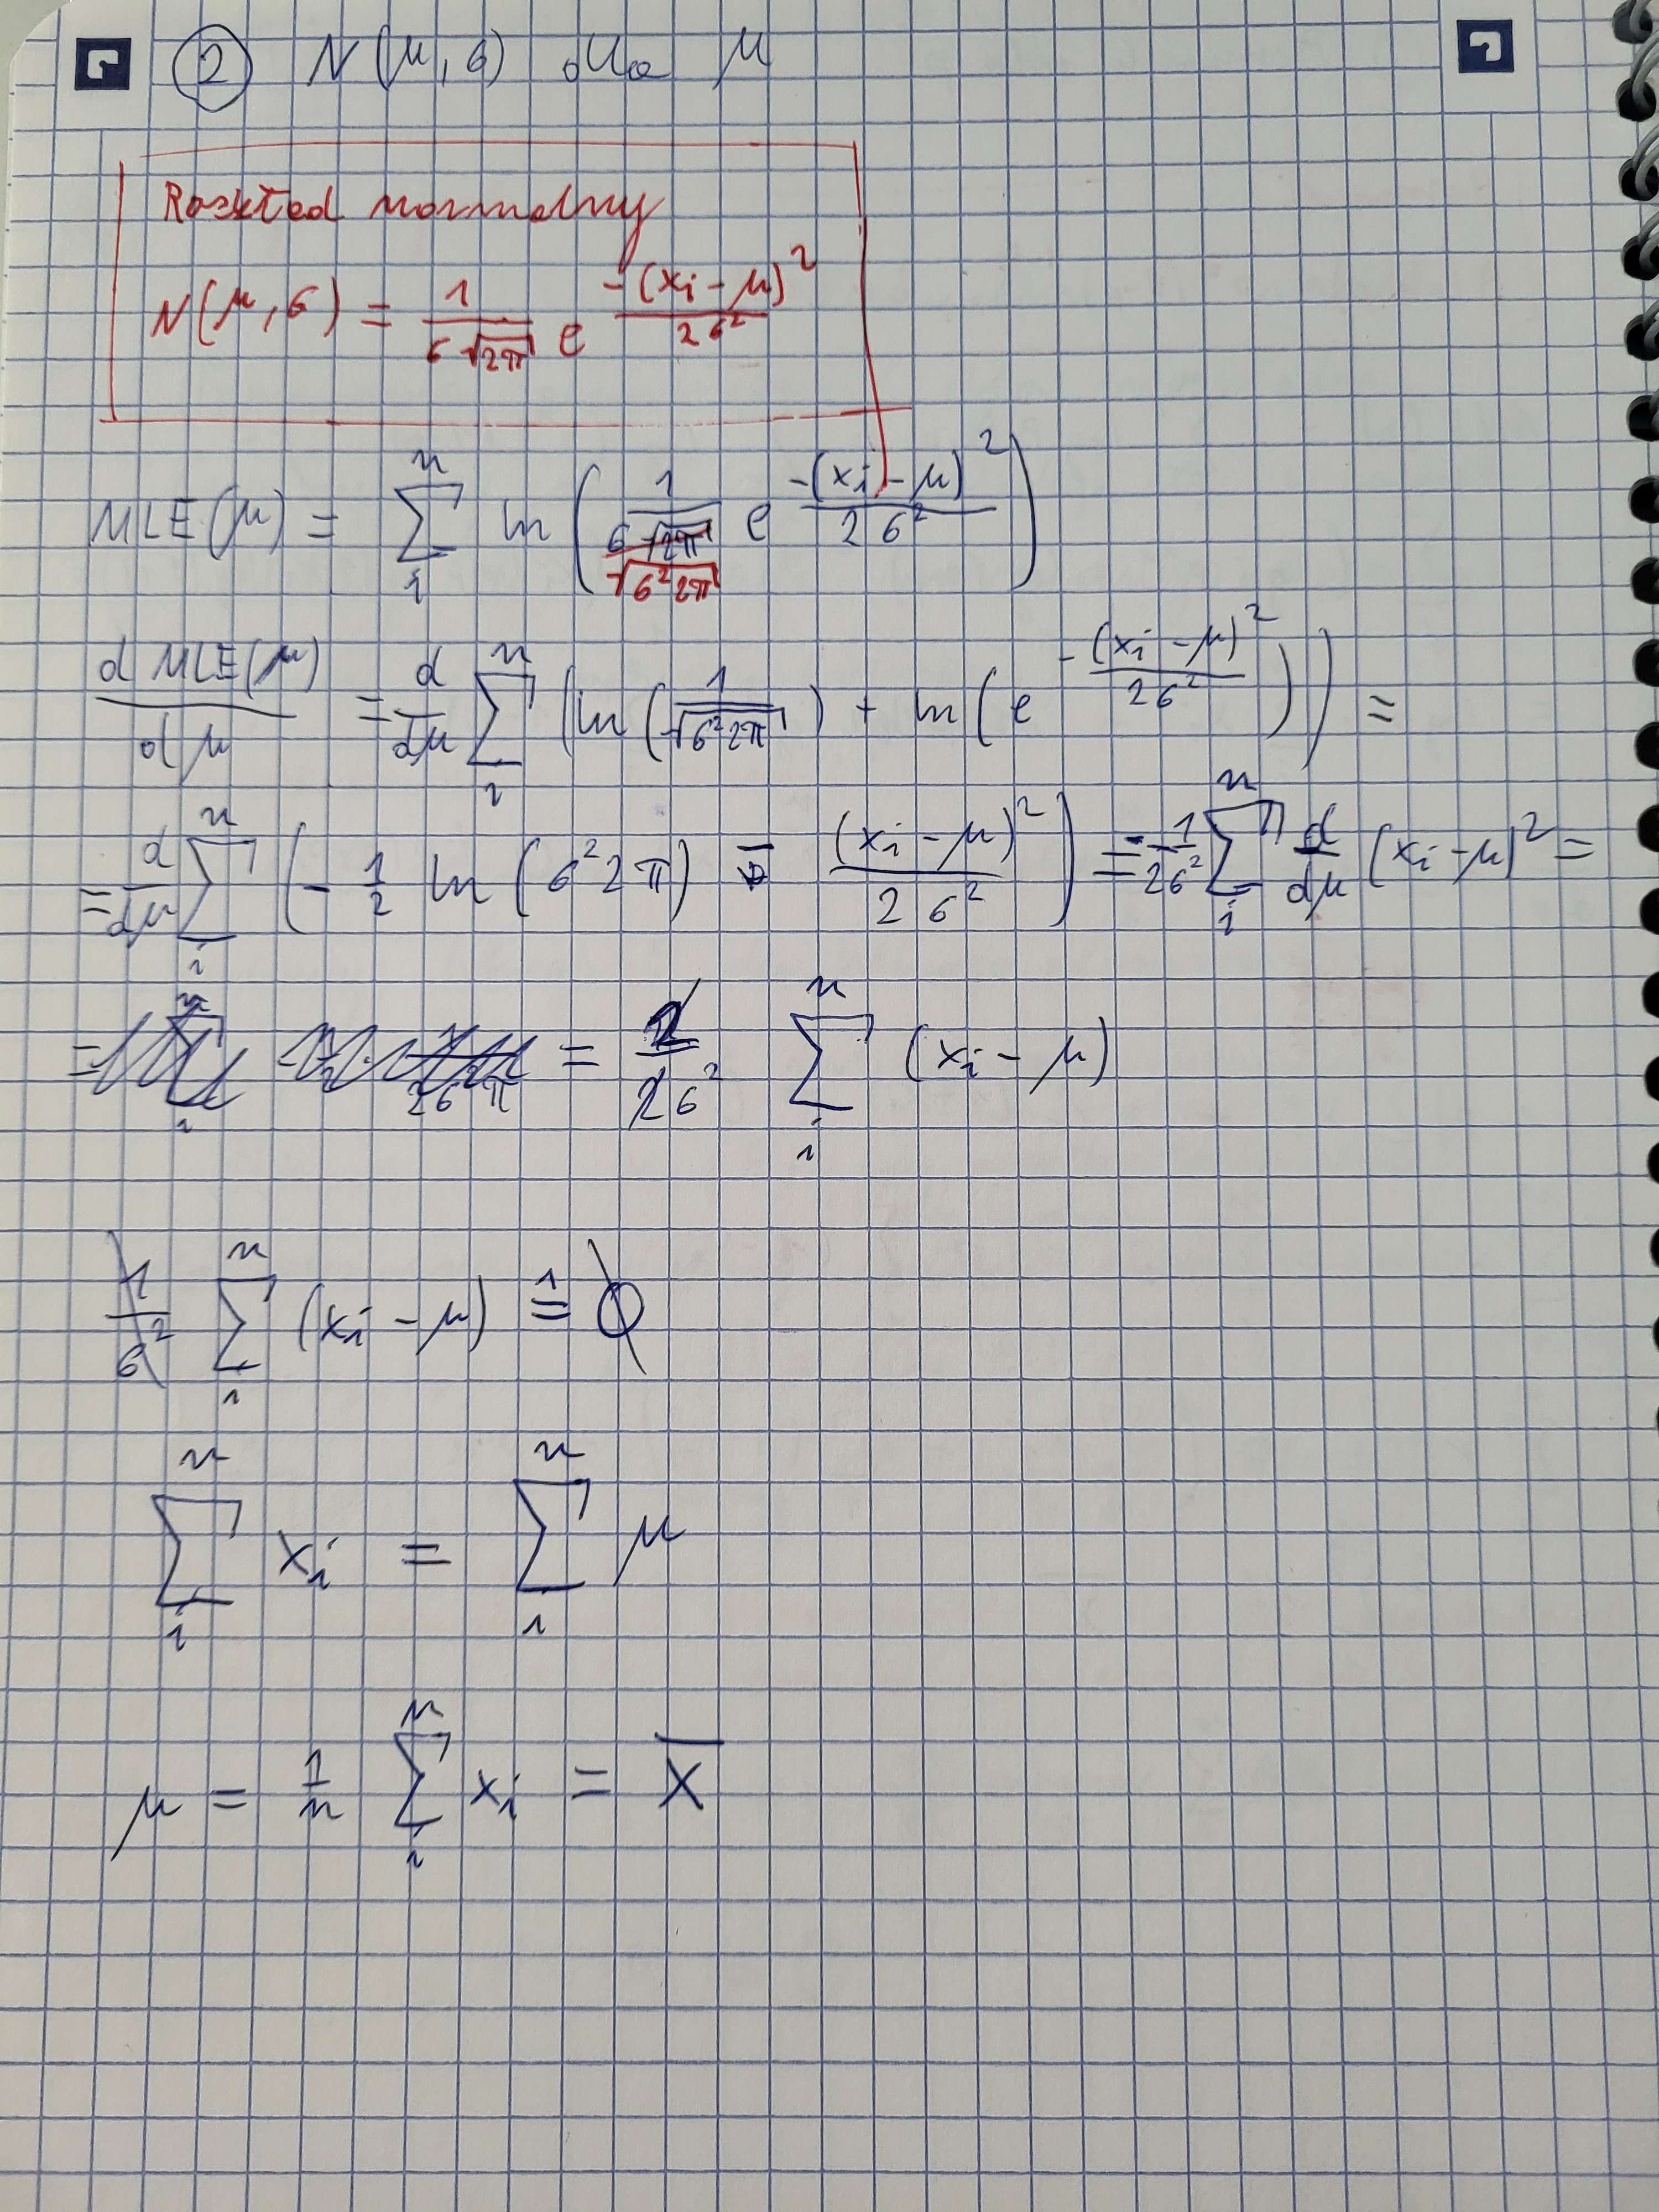 ② N(μ, σ) dla μ
Rozkład normalny
N(μ, σ) = \frac{1}{σ\sqrt{2π}} e^{\frac{-(x_i - μ)^2}{2σ^2}}
MLE(μ) = \sum_i^n ln( \frac{1}{σ\sqrt{2π}} e^{\frac{-(x_i - μ)^2}{2σ^2}} )
\sqrt{σ^2 2π}
\frac{d MLE(μ)}{dμ} = \frac{d}{dμ} \sum_i^n ( ln( \frac{1}{\sqrt{σ^2 2π}} ) + ln( e^{-\frac{(x_i - μ)^2}{2σ^2}} ) ) =
= \frac{d}{dμ} \sum_i^n ( -\frac{1}{2} ln( σ^2 2π ) - \frac{(x_i - μ)^2}{2σ^2} ) = -\frac{1}{2σ^2} \sum_i^n \frac{d}{dμ} (x_i - μ)^2 =
= \frac{2}{2σ^2} \sum_i^n (x_i - μ)
\frac{1}{σ^2} \sum_i^n (x_i - μ) \overset{1}{=} 0
\sum_i^n x_i = \sum_i^n μ
μ = \frac{1}{n} \sum_i^n x_i = \overline{X}